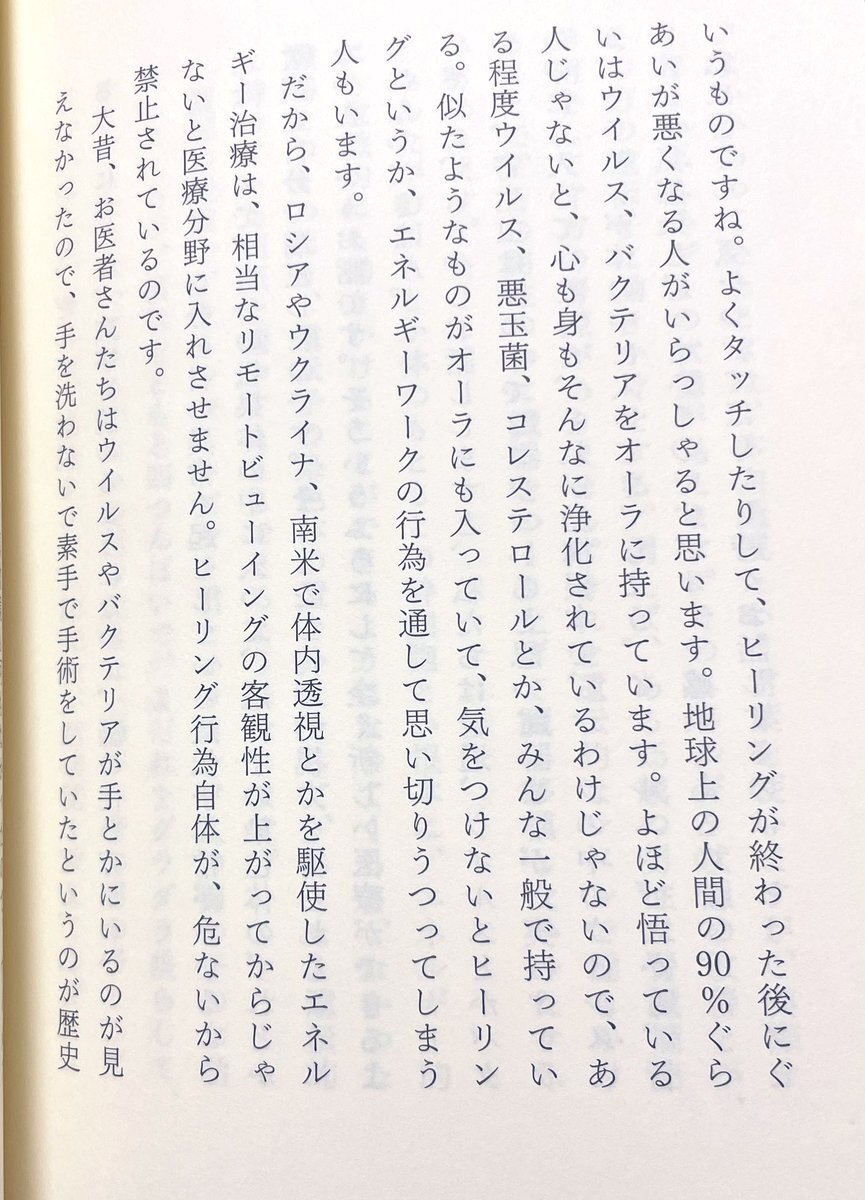 いうものですね。よくタッチしたりして、ヒーリングが終わった後にぐ
あいが悪くなる人がいらっしゃると思います。地球上の人間の90%ぐら
いはウイルス、バクテリアをオーラに持っています。よほど悟っている
人じゃないと、心も身もそんなに浄化されているわけじゃないので、あ
る程度ウイルス、悪玉菌、コレステロールとか、みんな一般で持ってい
る。似たようなものがオーラにも入っていて、気をつけないとヒーリン
グというか、エネルギーワークの行為を通して思い切りうつってしまう
人もいます。
だから、ロシアやウクライナ、南米で体内透視とかを駆使したエネル
ギー治療は、相当なリモートビューイングの客観性が上がってからじゃ
ないと医療分野に入れさせません。ヒーリング行為自体が、危ないから
禁止されているのです。
大昔、お医者さんたちはウイルスやバクテリアが手とかにいるのが見
えなかったので、手を洗わないで素手で手術をしていたというのが歴史